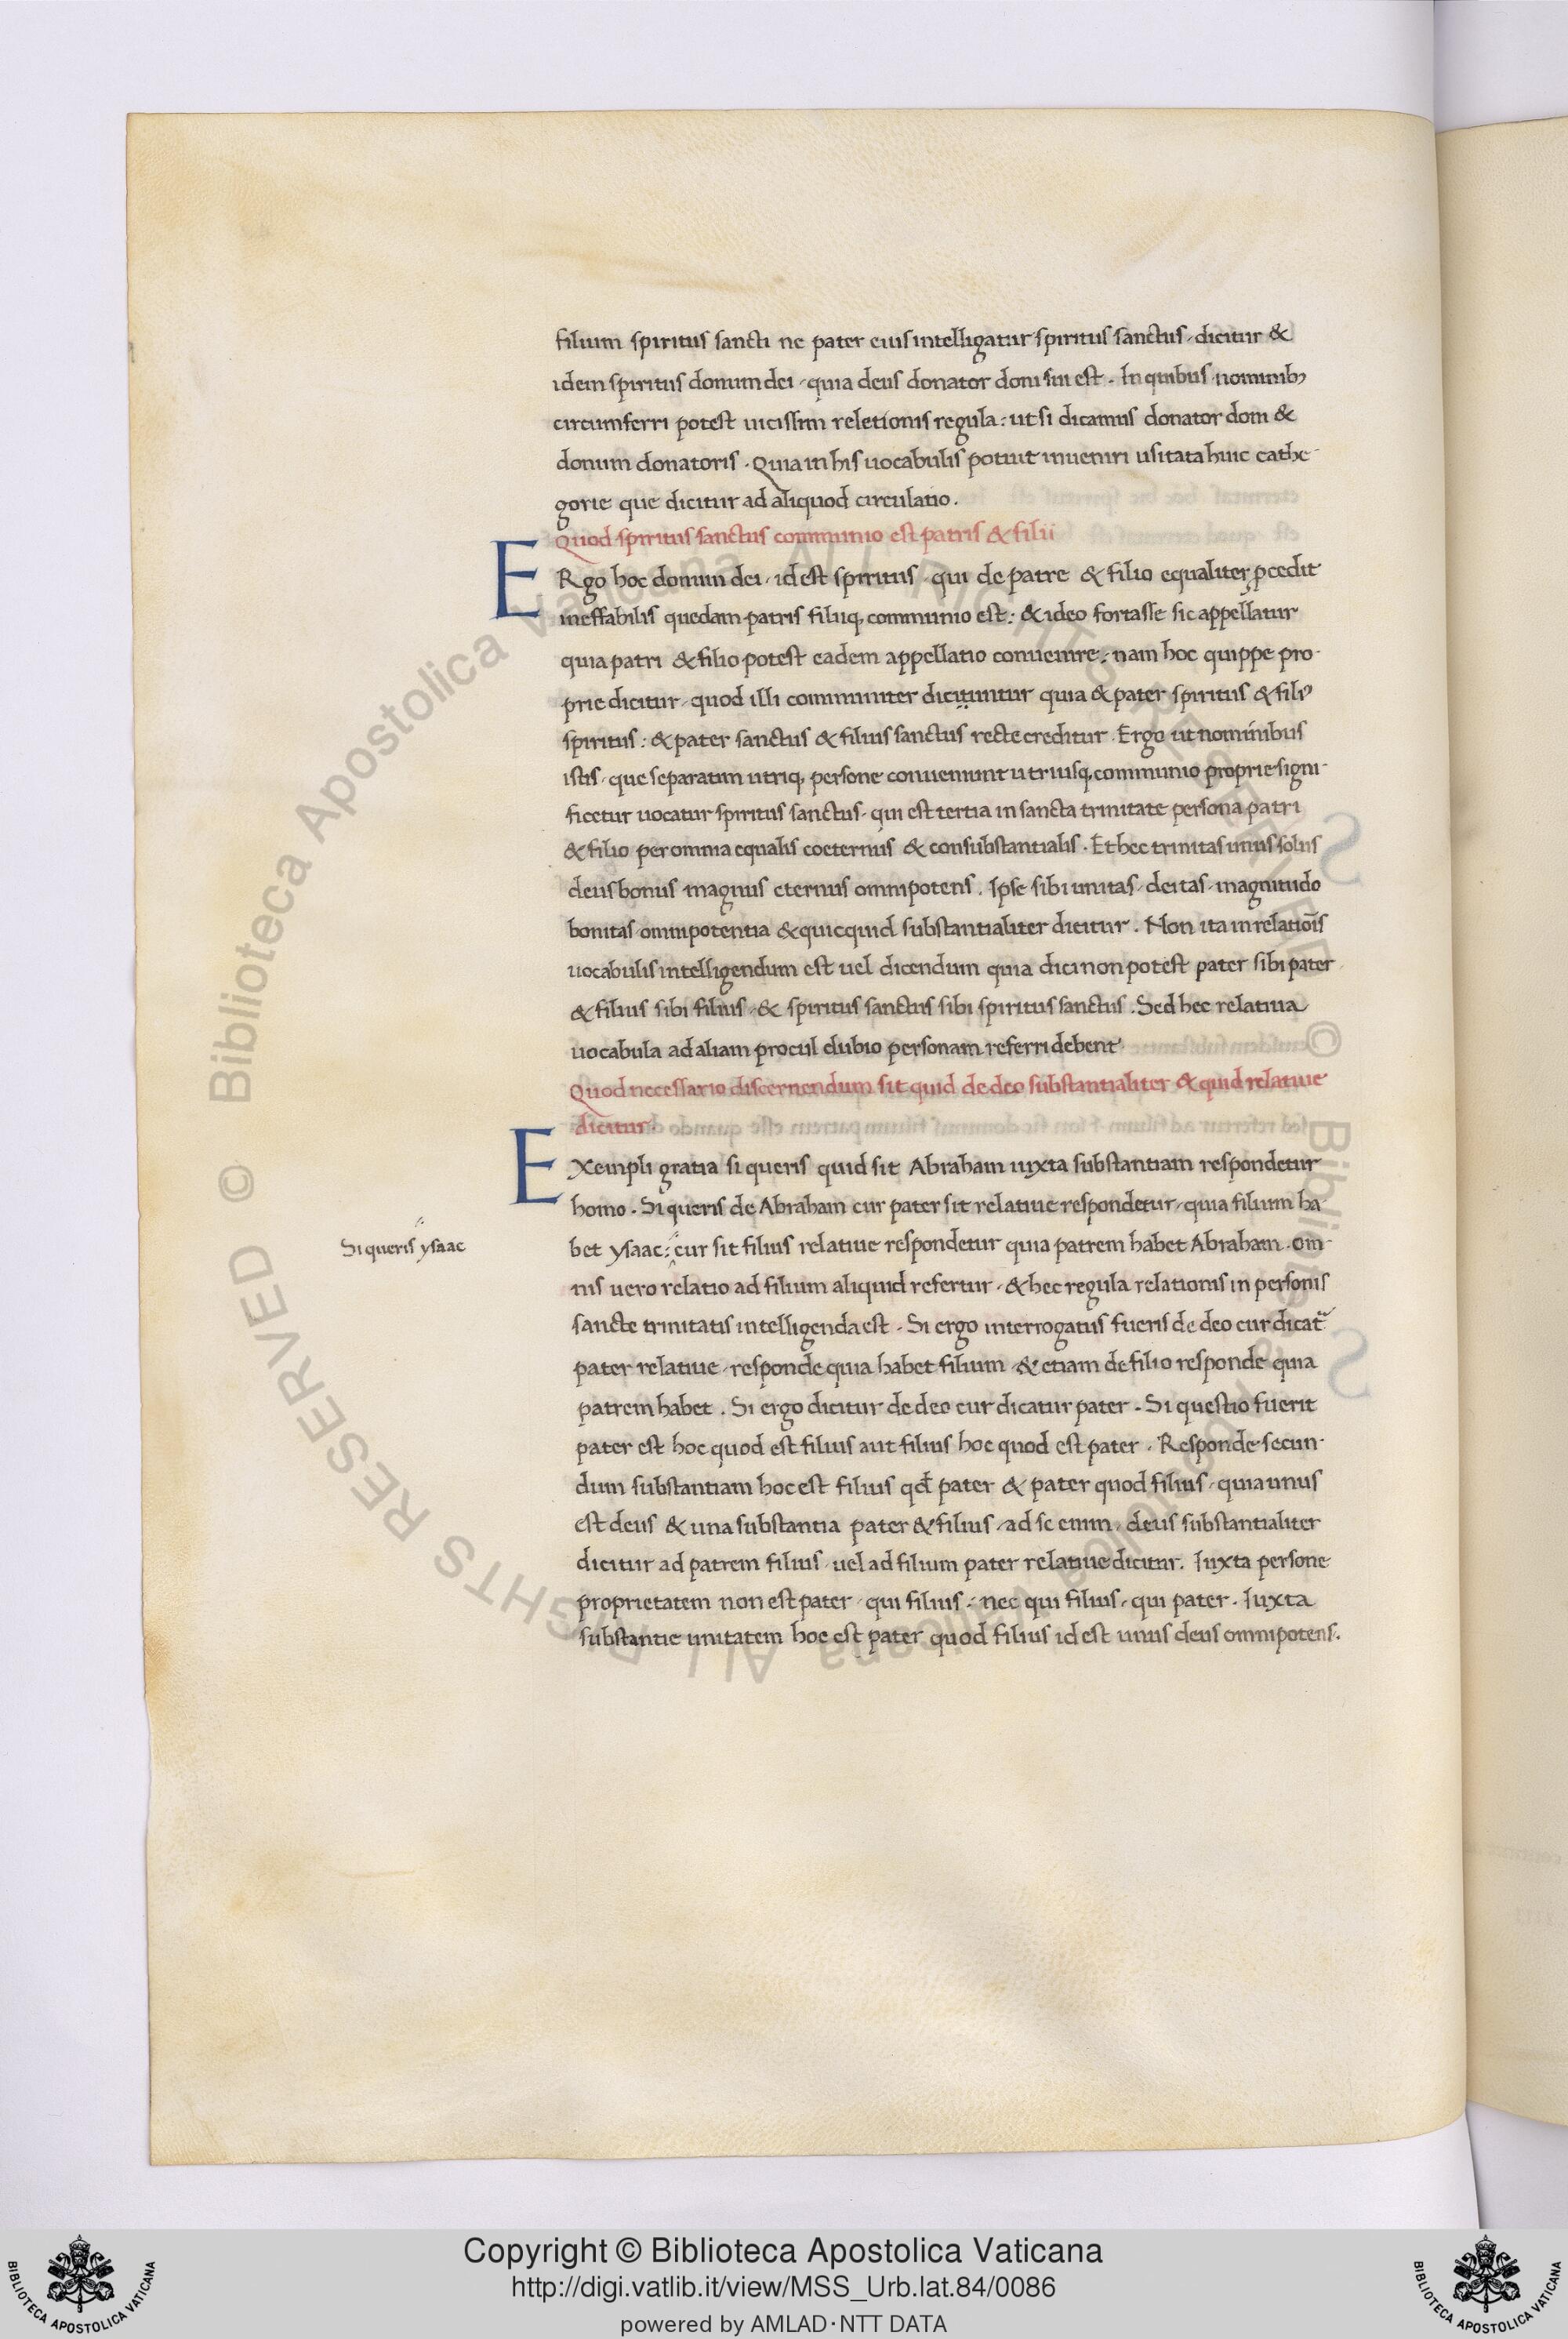 filium spiritus sancti ne pater eius intelligatur spiritus sanctus, dicitur &
idem spiritus donum dei, quia deus donator doni sui est. In quibus nominib;
circumferri potest uicissim reletionis regula: ut si dicamus donator doni &
donum donatoris. Quia in his uocabulis potuit inueniri usitata huic cathe-
gorie que dicitur ad aliquod circulatio.
Quod spiritus sanctus communio est patris & filii
ERgo hoc donum dei, id est spiritus, qui de patre & filio equaliter ꝓcedit
ineffabilis quedam patris filiiq; communio est: & ideo fortasse sic appellatur
quia patri & filio potest eadem appellatio conuenire: nam hoc quippe pro-
prie dicitur, quod illi communiter dicituntur quia & pater spiritus & filiꝰ
spiritus: & pater sanctus & filius sanctus recte creditur. Ergo ut nominibus
istis, que separatim utriq; persone conueniunt utriusq; communio proprie signi-
ficetur uocatur spiritus sanctus, qui est tertia in sancta trinitate persona patri
& filio per omnia equalis coeternus & consubstantialis. Et hec trinitas unus solus
deus bonus magnus eternus omnipotens. Ipse sibi unitas, deitas, magnitudo
bonitas omnipotentia & quicquid substantialiter dicitur. Non ita in relatiōis
uocabulis intelligendum est uel dicendum quia dici non potest pater sibi pater,
& filius sibi filius, & spiritus sanctus sibi spiritus sanctus. Sed hec relatiua
uocabula ad aliam procul dubio personam referri debent
Quod necessario discernendum sit quid de deo substantialiter & quid relatiue
dicitur.
EXempli gratia si queris quid sit Abraham iuxta substantiam respondetur
homo. Si queris de Abraham cur pater sit relatiue respondetur, quia filium ha-
Si queris ysaac
bet ysaac: cur sit filius relatiue respondetur quia patrem habet Abraham. om-
nis uero relatio ad filium aliquid refertur, & hec regula relationis in personis
sancte trinitatis intelligenda est. Si ergo interrogatus fueris de deo cur dicat᷑
pater relatiue, responde quia habet filium, & etiam de filio responde quia
patrem habet. Si ergo dicitur de deo cur dicatur pater. Si questio fuerit
pater est hoc quod est filius aut filius hoc quod est pater. Responde secun-
dum substantiam hoc est filius qd̛ pater & pater quod filius, quia unus
est deus & una substantia pater & filius, ad se enim, deus substantialiter
dicitur ad patrem filius, uel ad filium pater relatiue dicitur. Iuxta persone
proprietatem non est pater, qui filius, nec qui filius, qui pater. Iuxta
substantie unitatem hoc est pater quod filius id est unus deus omnipotens.
© Biblioteca Apostolica Vaticana ALL RIGHTS RESERVED
© Biblioteca Apostolica Vaticana ALL RIGHTS RESERVED
Copyright © Biblioteca Apostolica Vaticana
http://digi.vatlib.it/view/MSS_Urb.lat.84/0086
powered by AMLAD·NTT DATA
BIBLIOTECA APOSTOLICA VATICANA
BIBLIOTECA APOSTOLICA VATICANA